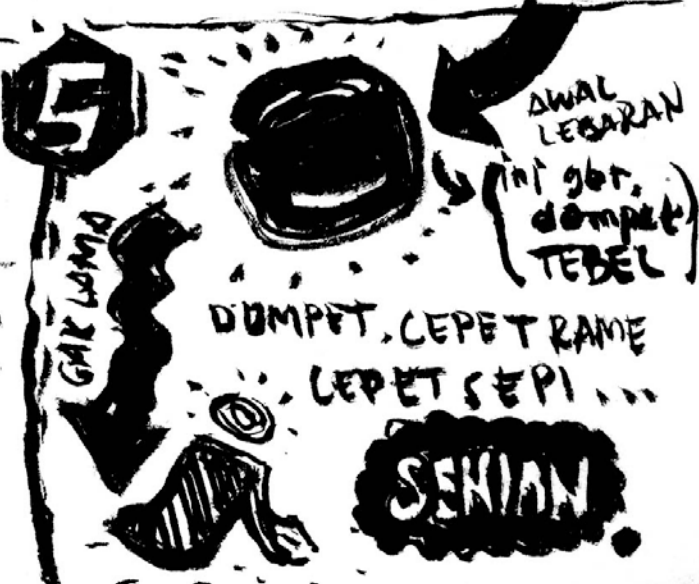 5
AWAL
LEBARAN
(ini gbr.
dompet
TEBEL)
GAK LAMA
DOMPET, CEPET RAME
CEPET SEPI ...
SEKIAN